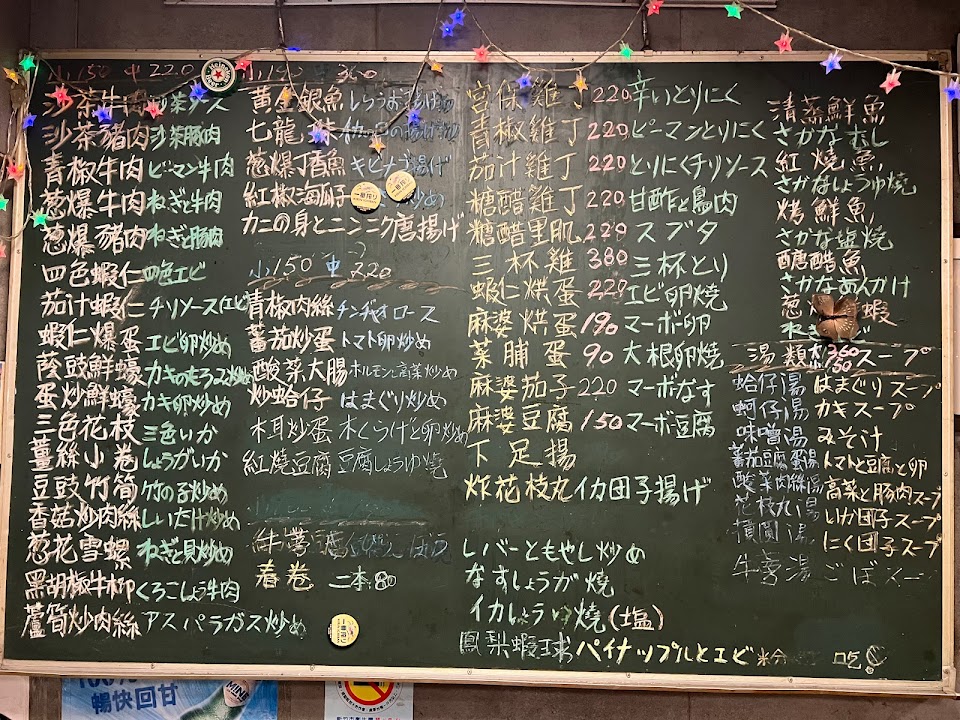 小150 中220
沙茶牛肉 沙茶ソース
沙茶豬肉 沙茶豚肉
青椒牛肉 ピーマン牛肉
葱爆牛肉 ねぎと牛肉
葱爆豬肉 ねぎと豚肉
四色蝦仁 四色エビ
茄汁蝦仁 チリソース(エビ)
蝦仁爆蛋 エビ卵炒め
蔭豉鮮蠔
蛋炒鮮蠔 カキ卵炒め
三色花枝 三色いか
薑絲小卷 しょうがいか
豆豉竹筍 竹の子炒め
香菇炒肉絲 しいたけ炒め
葱花雪螺 ねぎと貝炒め
黑胡椒牛柳 くろこしょう牛肉
蘆筍炒肉絲 アスパラガス炒め
Heineken
黃金銀魚 しらうお揚げ
七龍
葱爆丁香魚 キビナゴ揚げ
紅椒海瓜子 炒め
カニの身とニンニク唐揚げ
小150 中220
青椒肉絲 チンヂャオロース
蕃茄炒蛋 トマト卵炒め
酸菜大腸 ホルモンと高菜炒め
炒蛤仔 はまぐり炒め
木耳炒蛋 木くらげと卵炒め
紅燒豆腐 豆腐しょうゆ焼
牛蒡
春卷 二本.80
宮保雞丁 220 辛いとりにく
青椒雞丁 220 ピーマンとりにく
茄汁雞丁 220 とりにくチリソース
糖醋雞丁 220 甘酢と鳥肉
糖醋里肌 220 スブタ
三杯雞 380 三杯とり
蝦仁烘蛋 220 エビ卵焼
麻婆烘蛋 190 マーボ卵
菜脯蛋 90 大根卵焼
麻婆茄子 220 マーボなす
麻婆豆腐 150 マーボ豆腐
下足揚
炸花枝丸 イカ団子揚げ
レバーともやし炒め
なすしょうが焼
イカしょうゆ焼(塩)
鳳梨蝦球 パイナップルとエビ
清蒸鮮魚
さかなむし
紅燒魚
さかなしょうゆ焼
烤鮮魚
さかな塩焼
醣醋魚
さかなあんかけ
葱 蝦
湯類 スープ
蛤仔湯 はまぐりスープ
蚵仔湯 カキスープ
味噌湯 みそ汁
蕃茄豆腐蛋湯 トマトと豆腐と卵
酸菜肉絲湯 高菜と豚肉スープ
花枝丸湯 いか団子スープ
摃圓湯 にく団子スープ
牛蒡湯 ごぼスープ
暢快回甘